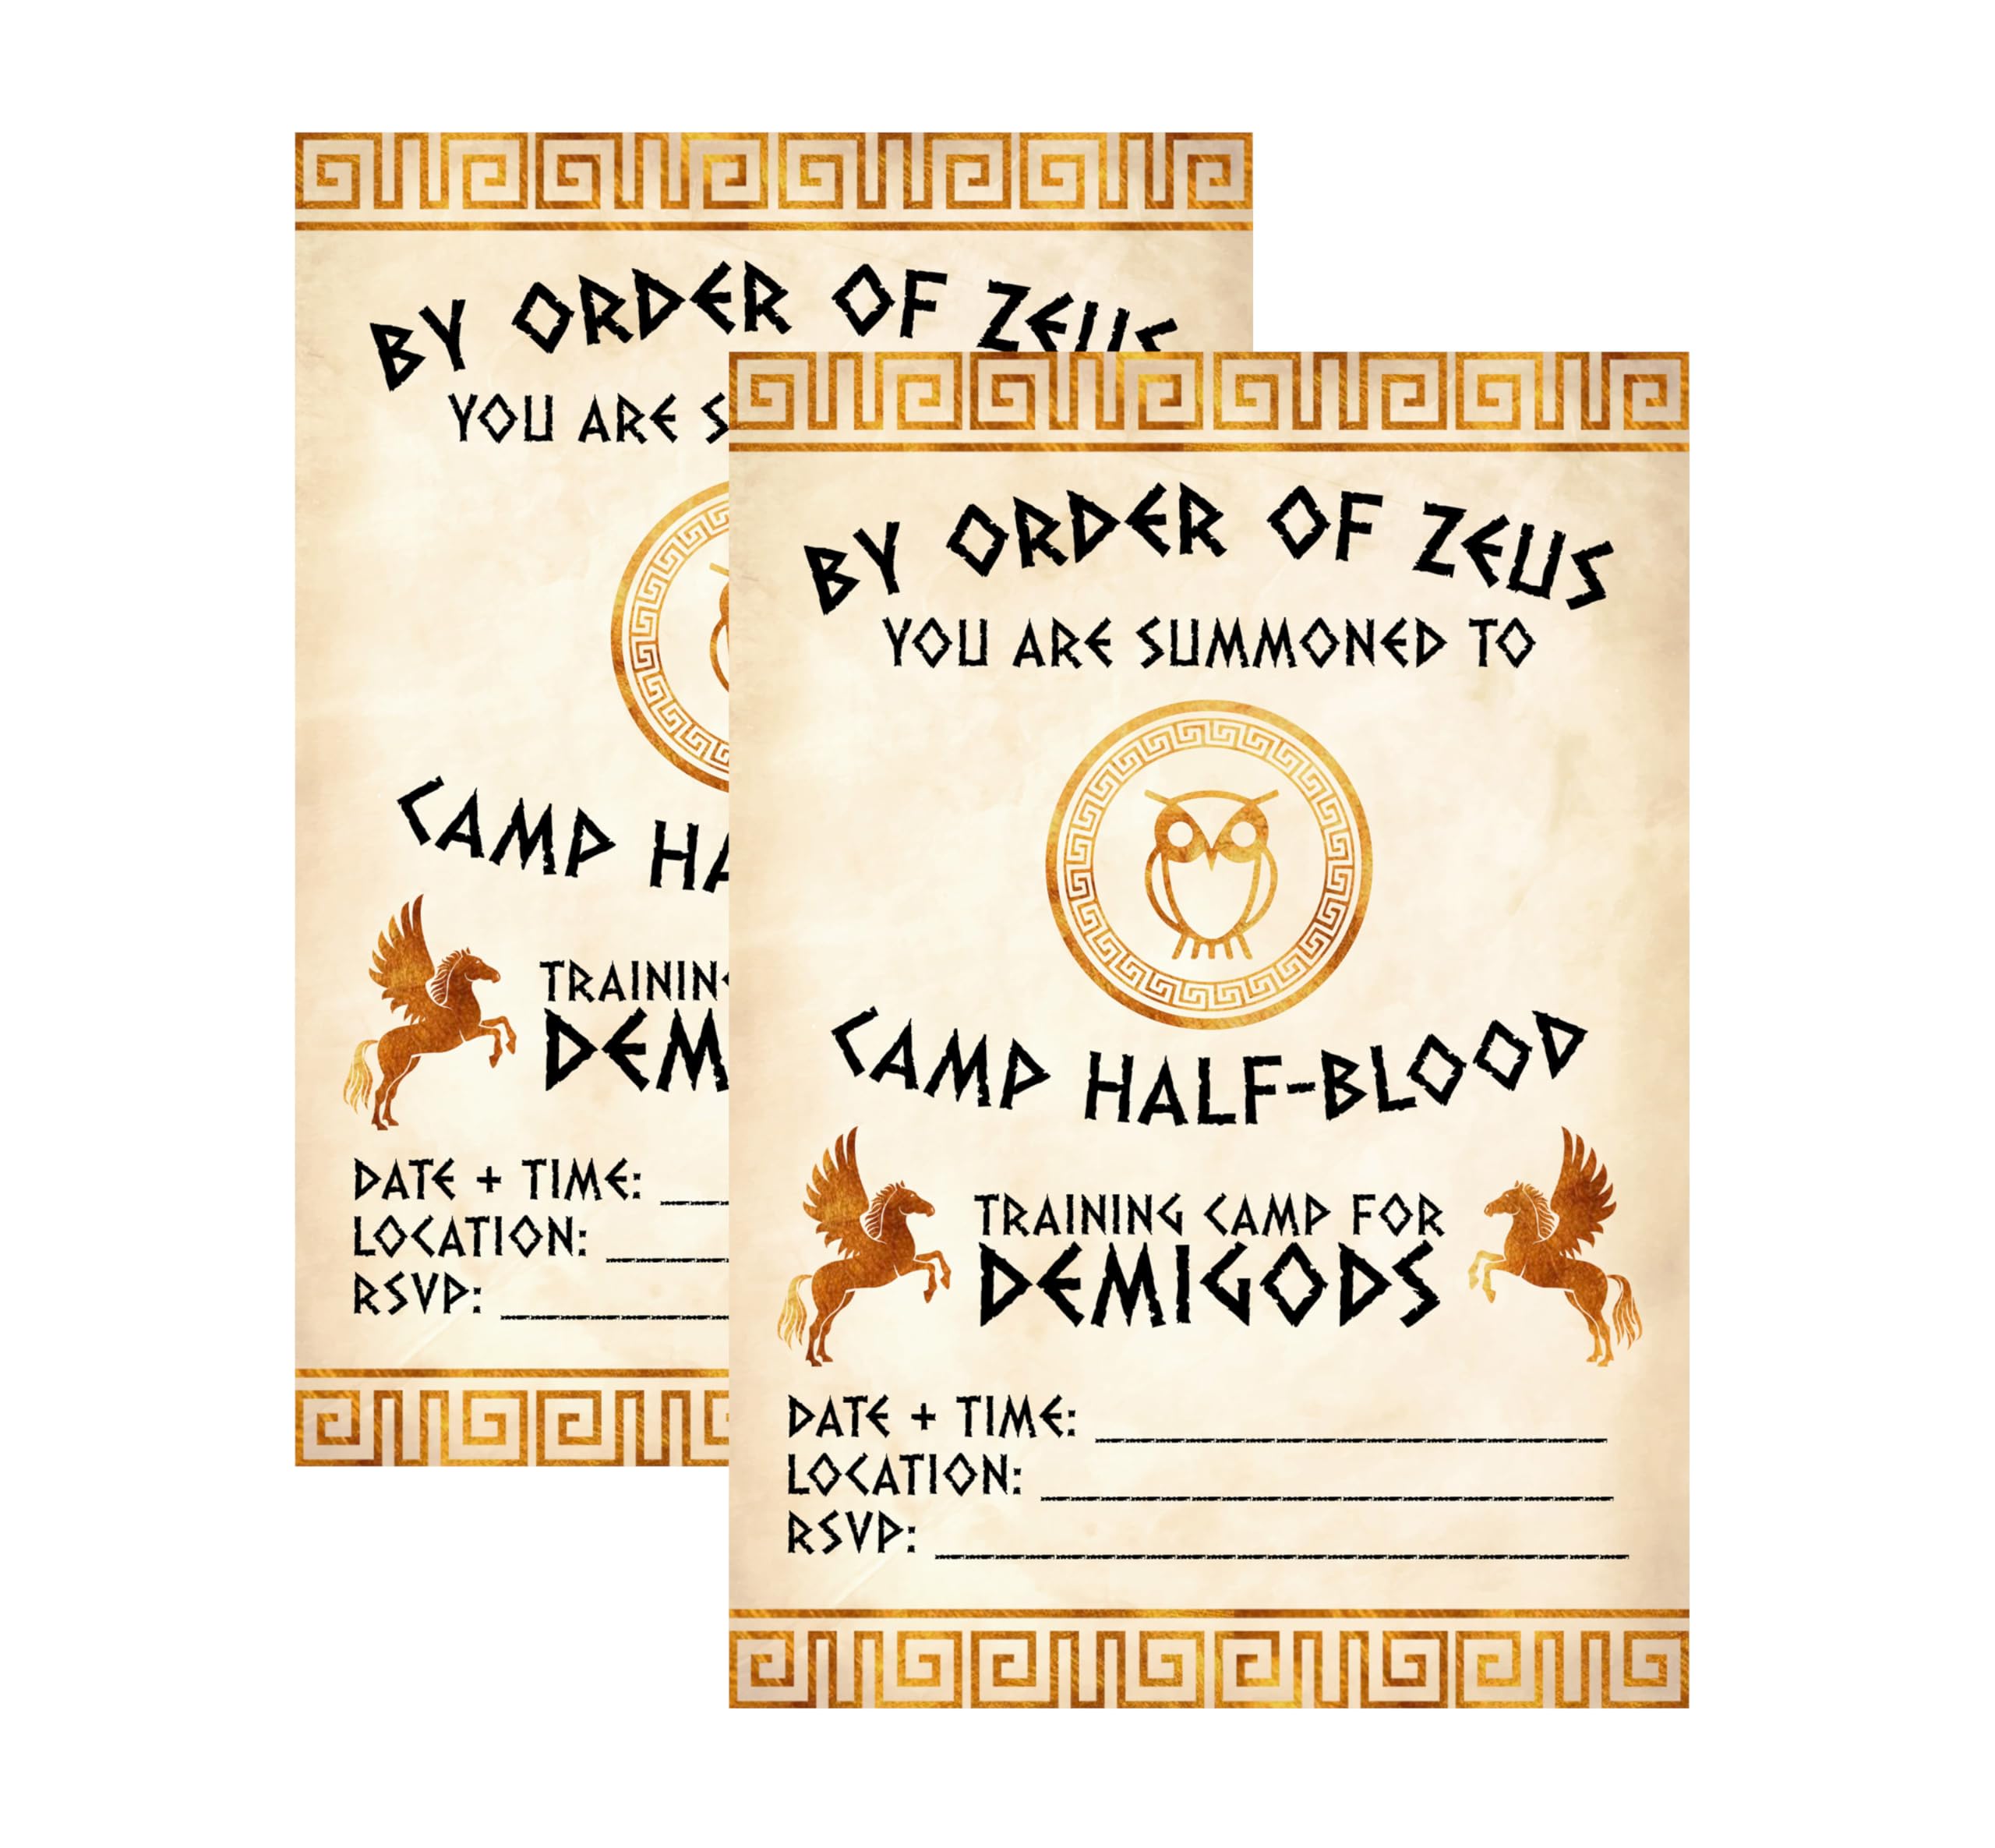 BY ORDER OF ZEUS
YOU ARE S
CAMP HA
TRAINING
DEM
DATE + TIME:
LOCATION:
RSVP:
BY ORDER OF ZEUS
YOU ARE SUMMONED TO
CAMP HALF-BLOOD
TRAINING CAMP FOR
DEMIGODS
DATE + TIME:
LOCATION:
RSVP: